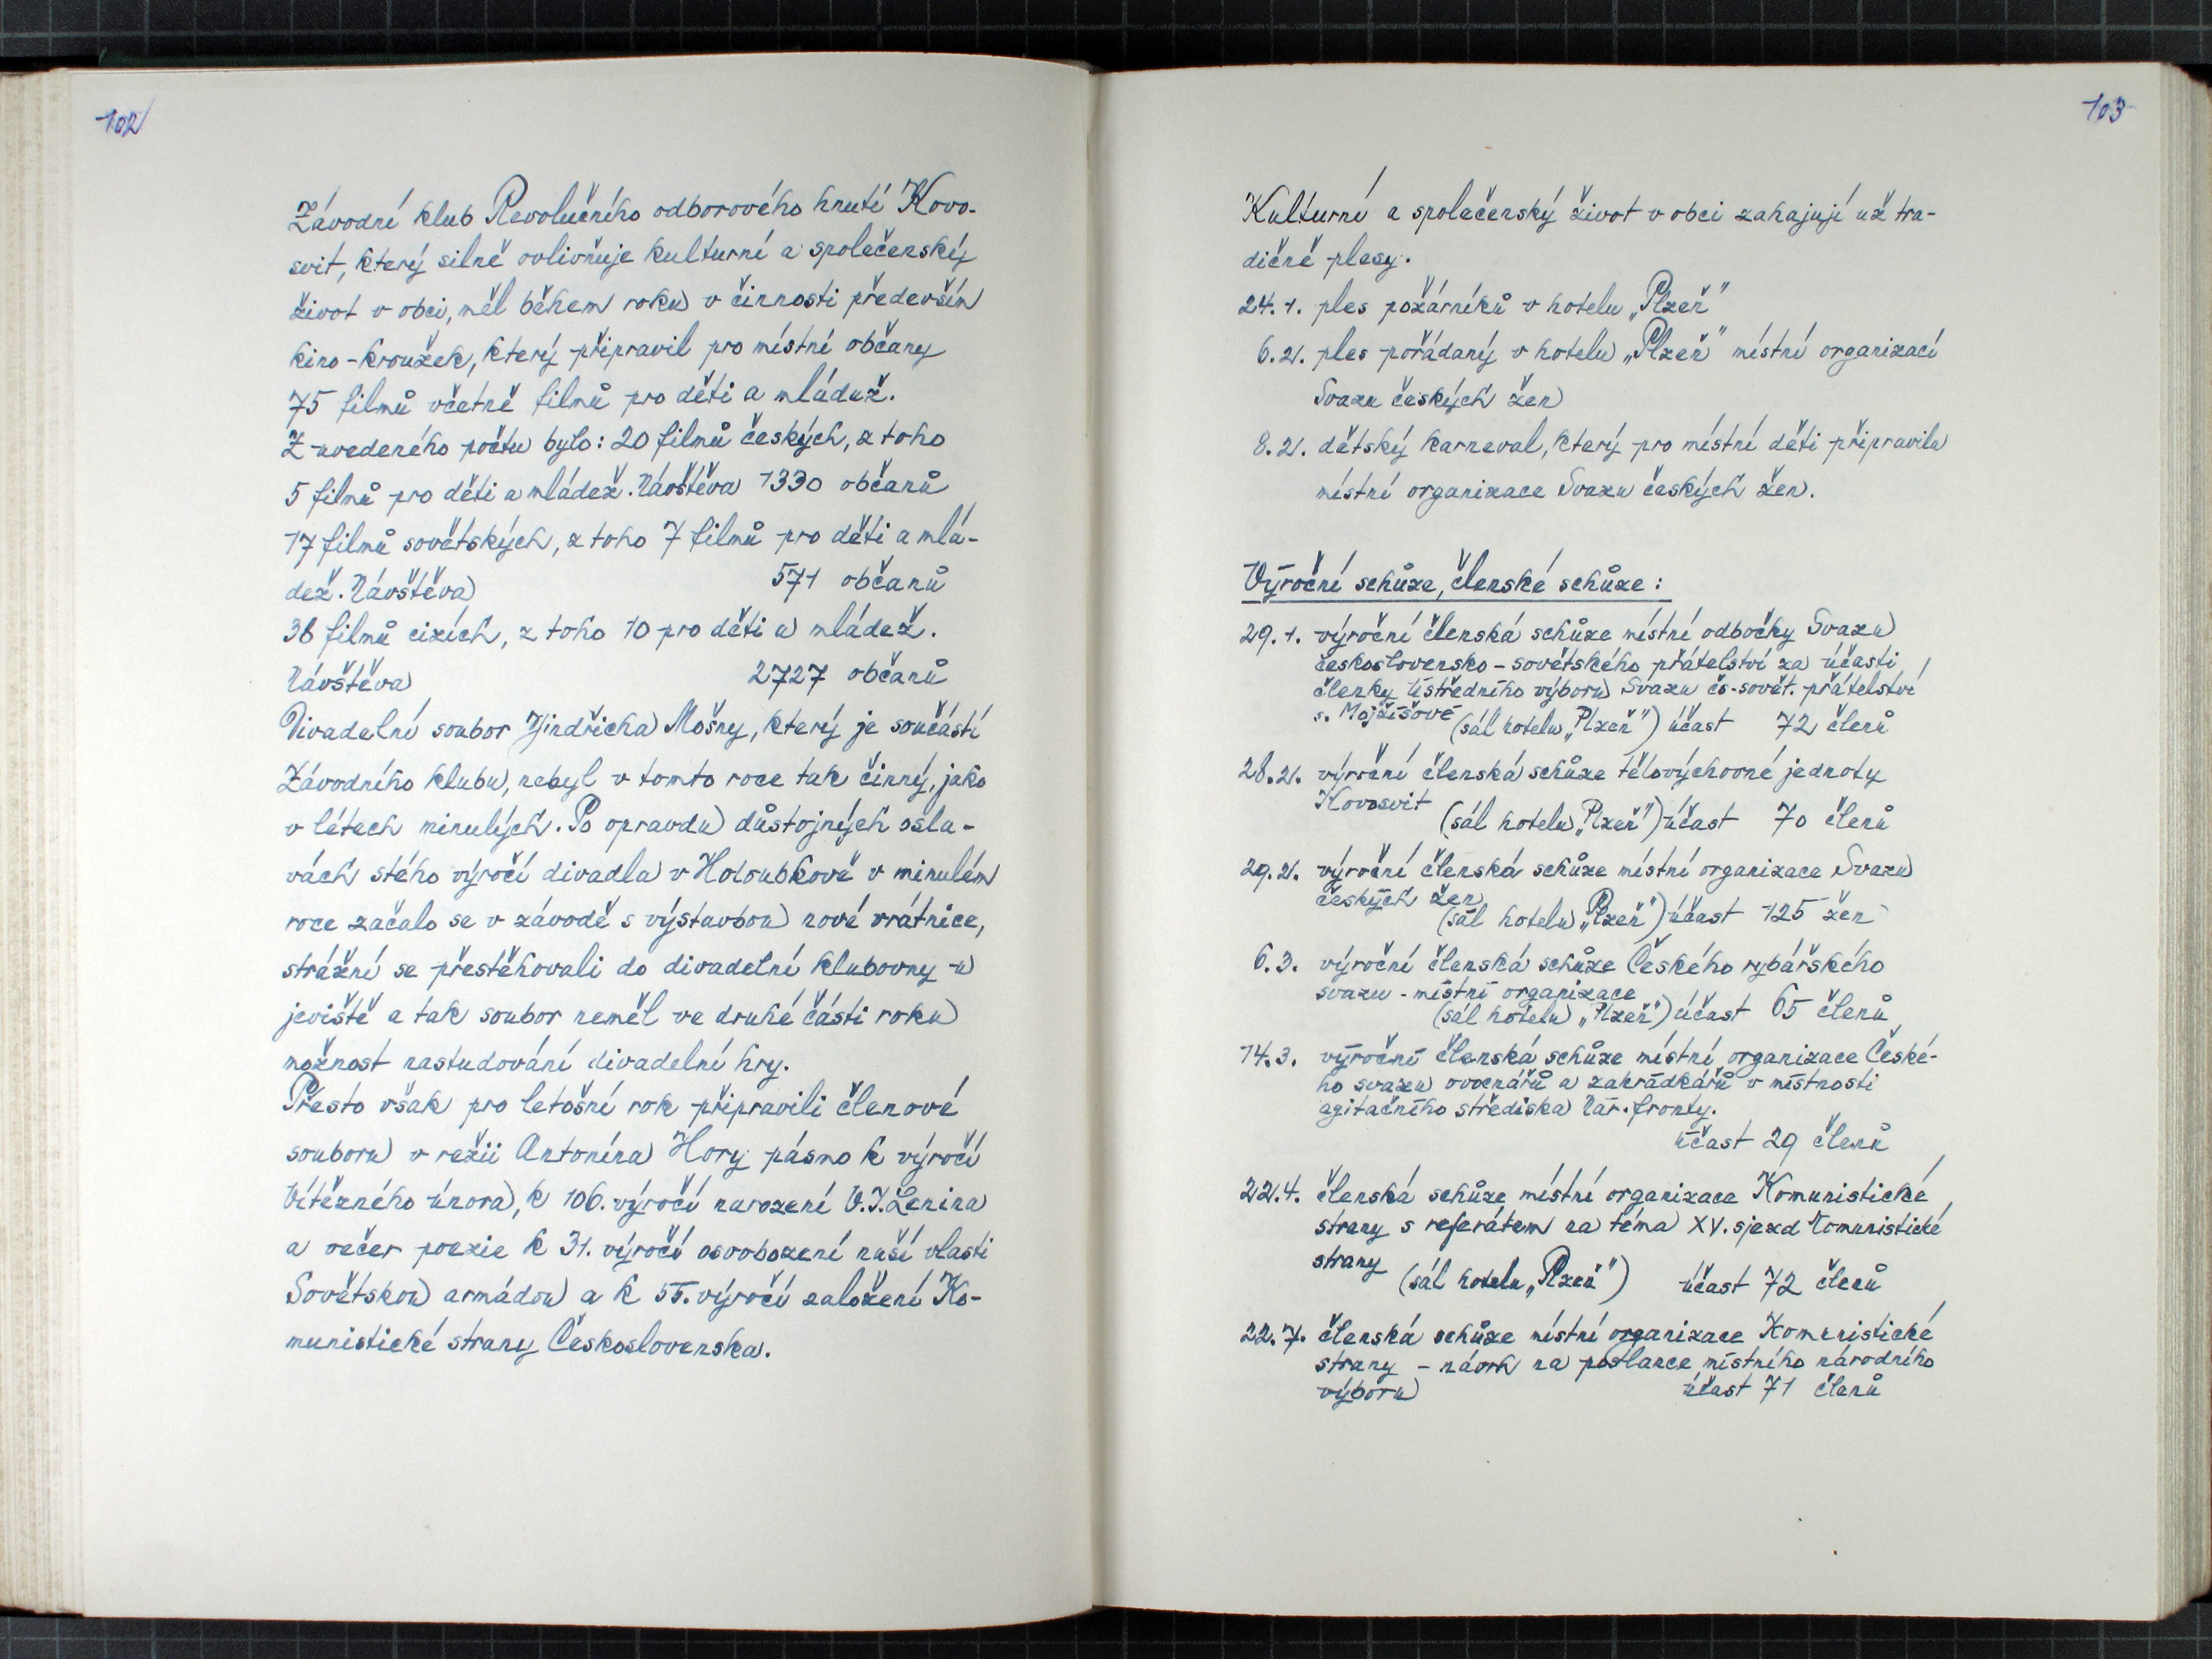 102
Závodní klub Revolučního odborového hnutí Kovo-
svit, který silně ovlivňuje kulturní a společenský
život v obci, měl během roku v činnosti především
kino-kroužek, který připravil pro místní občany
75 filmů včetně filmů pro děti a mládež.
Z uvedeného počtu bylo: 20 filmů českých, z toho
5 filmů pro děti a mládež. Návštěva 1330 občanů
17 filmů sovětských, z toho 7 filmů pro děti a mlá-
dež. Návštěva 571 občanů
38 filmů cizích, z toho 10 pro děti a mládež.
Návštěva 2727 občanů
Divadelní soubor Jindřicha Mošny, který je součástí
Závodního klubu, nebyl v tomto roce tak činný, jako
v létech minulých. Po opravdu důstojných osla-
vách stého výročí divadla v Holoubkově v minulém
roce začalo se v závodě s výstavbou nové vrátnice,
strážní se přestěhovali do divadelní klubovny u
jeviště a tak soubor neměl ve druhé části roku
možnost nastudování divadelní hry.
Přesto však pro letošní rok připravili členové
souboru v režii Antonína Hory pásmo k výročí
Vítězného února, k 106. výročí narození V. I. Lenina
a večer poezie k 31. výročí osvobození naší vlasti
Sovětskou armádou a k 55. výročí založení Ko-
munistické strany Československa.
103
Kulturní a společenský život v obci zahajují už tra-
dičně plesy.
24. 1. ples požárníků v hotelu „Plzeň"
6. 2. ples pořádaný v hotelu „Plzeň" místní organizací
Svazu českých žen
8. 2. dětský karneval, který pro místní děti připravila
místní organizace Svazu českých žen.
Výroční schůze, členské schůze:
29. 1. výroční členská schůze místní odbočky Svazu
československo-sovětského přátelství za účasti
členky Ústředního výboru Svazu čs-sovět. přátelství
s. Mojžíšové (sál hotelu „Plzeň") účast 72 členů
28. 2. výroční členská schůze tělovýchovné jednoty
Kovosvit (sál hotelu „Plzeň") účast 70 členů
29. 2. výroční členská schůze místní organizace Svazu
českých žen
(sál hotelu „Plzeň") účast 125 žen
6. 3. výroční členská schůze Českého rybářského
svazu - místní organizace
(sál hotelu „Plzeň") účast 65 členů
14. 3. výroční členská schůze místní organizace České-
ho svazu ovocnářů a zahrádkářů v místnosti
agitačního střediska Nár. fronty.
účast 29 členů
22. 4. členská schůze místní organizace Komunistické
strany s referátem na téma XV. sjezd Komunistické
strany (sál hotelu „Plzeň") účast 72 členů
22. 7. členská schůze místní organizace Komunistické
strany - návrh na poslance místního národního
výboru účast 71 členů